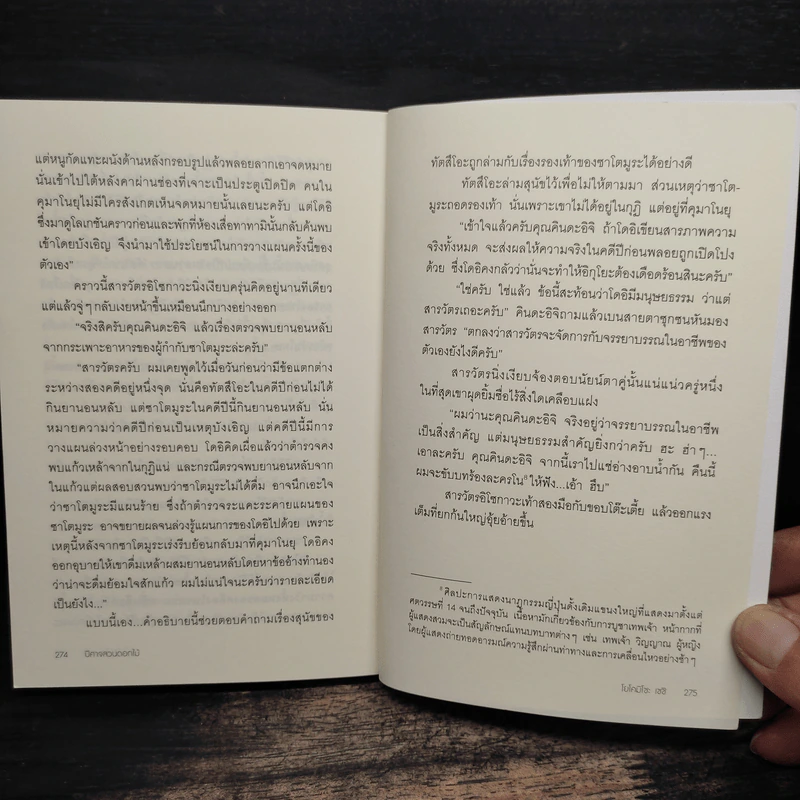 แต่หนูกัดแทะผนังด้านหลังกรอบรูปแล้วพลอยลากเอาจดหมาย
นั่นเข้าไปใต้หลังคาผ่านช่องที่เจาะเป็นประตูเปิดปิด คนใน
คุมาโนยุไม่มีใครสังเกตเห็นจดหมายนั้นเลยนะครับ แต่โดอิ
ซึ่งมาดูโลเกชันคราวก่อนและพักที่ห้องเสื่อทาทามินั้นกลับค้นพบ
เข้าโดยบังเอิญ จึงนำมาใช้ประโยชน์ในการวางแผนครั้งนี้ของ
ตัวเอง"
คราวนี้สารวัตรอิโซกาวะนิ่งเงียบครุ่นคิดอยู่นานทีเดียว
แต่แล้วจู่ๆ กลับเงยหน้าขึ้นเหมือนนึกบางอย่างออก
"จริงสิครับคุณคินดะอิจิ แล้วเรื่องตรวจพบยานอนหลับ
จากกระเพาะอาหารของผู้กำกับซาโตมูระล่ะครับ"
"สารวัตรครับ ผมเคยพูดไว้เมื่อวันก่อนว่ามีข้อแตกต่าง
ระหว่างสองคดีอยู่หนึ่งจุด นั่นคือทัตสึโอะในคดีปีก่อนไม่ได้
กินยานอนหลับ แต่ซาโตมูระในคดีปีนี้กินยานอนหลับ นั่น
หมายความว่าคดีปีก่อนเป็นเหตุบังเอิญ แต่คดีปีนี้มีการ
วางแผนล่วงหน้าอย่างรอบคอบ โดอิคิดเผื่อแล้วว่าตำรวจคง
พบแก้วเหล้าจากในกุฏิแน่ และกรณีตรวจพบยานอนหลับจาก
ในแก้วแต่ผลสอบสวนพบว่าซาโตมูระไม่ได้ดื่ม อาจนึกเอะใจ
ว่าซาโตมูระมีแผนร้าย ซึ่งถ้าตำรวจระแคะระคายแผนของ
ซาโตมูระ อาจขยายผลจนล่วงรู้แผนการของโดอิไปด้วย เพราะ
เหตุนี้หลังจากซาโตมูระเร่งรีบย้อนกลับมาที่คุมาโนยุ โดอิคง
ออกอุบายให้เขาดื่มเหล้าผสมยานอนหลับโดยหาข้ออ้างทำนอง
ว่าน่าจะดื่มย้อมใจสักแก้ว ผมไม่แน่ใจนะครับว่ารายละเอียด
เป็นยังไง..."
แบบนี้เอง...คำอธิบายนี้ช่วยตอบคำถามเรื่องสุนัขของ
274 ปีศาจสวนดอกไม้
ทัตสึโอะถูกล่ามกับเรื่องรองเท้าของซาโตมูระได้อย่างดี
ทัตสึโอะล่ามสุนัขไว้เพื่อไม่ให้ตามมา ส่วนเหตุว่าซาโต-
มูระถอดรองเท้า นั่นเพราะเขาไม่ได้อยู่ในกุฏิ แต่อยู่ที่คุมาโนยุ
"เข้าใจแล้วครับคุณคินดะอิจิ ถ้าโดอิเขียนสารภาพความ
จริงทั้งหมด จะส่งผลให้ความจริงในคดีปีก่อนพลอยถูกเปิดโปง
ด้วย ซึ่งโดอิคงกลัวว่านั่นจะทำให้อิกุโยะต้องเดือดร้อนสินะครับ"
"ใช่ครับ ใช่แล้ว ข้อนี้สะท้อนว่าโดอิมีมนุษยธรรม ว่าแต่
สารวัตรเถอะครับ" คินดะอิจิถามแล้วเบนสายตาซุกซนหันมอง
สารวัตร "ตกลงว่าสารวัตรจะจัดการกับจรรยาบรรณในอาชีพของ
ตัวเองยังไงดีครับ"
สารวัตรนิ่งเงียบจ้องตอบนัยน์ตาคู่นั้นแน่แน่วครู่หนึ่ง
ในที่สุดเขาผุดยิ้มซื่อไร้สิ่งใดเคลือบแฝง
"ผมว่านะคุณคินดะอิจิ จริงอยู่ว่าจรรยาบรรณในอาชีพ
เป็นสิ่งสำคัญ แต่มนุษยธรรมสำคัญยิ่งกว่าครับ ฮะ ฮ่าๆ...
เอาละครับ คุณคินดะอิจิ จากนี้เราไปแช่อ่างอาบน้ำกัน คืนนี้
ผมจะขับบทร้องละครโน⁸ ให้ฟัง...เอ้า ฮึบ"
สารวัตรอิโซกาวะเท้าสองมือกับขอบโต๊ะเตี้ย แล้วออกแรง
เต็มที่ยกก้นใหญ่อุ้ยอ้ายขึ้น
⁸ ศิลปะการแสดงนาฏกรรมญี่ปุ่นดั้งเดิมแขนงใหญ่ที่แสดงมาตั้งแต่
ศตวรรษที่ 14 จนถึงปัจจุบัน เนื้อหามักเกี่ยวข้องกับการบูชาเทพเจ้า หน้ากากที่
ผู้แสดงสวมจะเป็นสัญลักษณ์แทนบทบาทต่างๆ เช่น เทพเจ้า วิญญาณ ผู้หญิง
โดยผู้แสดงถ่ายทอดอารมณ์ความรู้สึกผ่านท่าทางและการเคลื่อนไหวอย่างช้าๆ
โยโคมิโซะ เซชิ 275